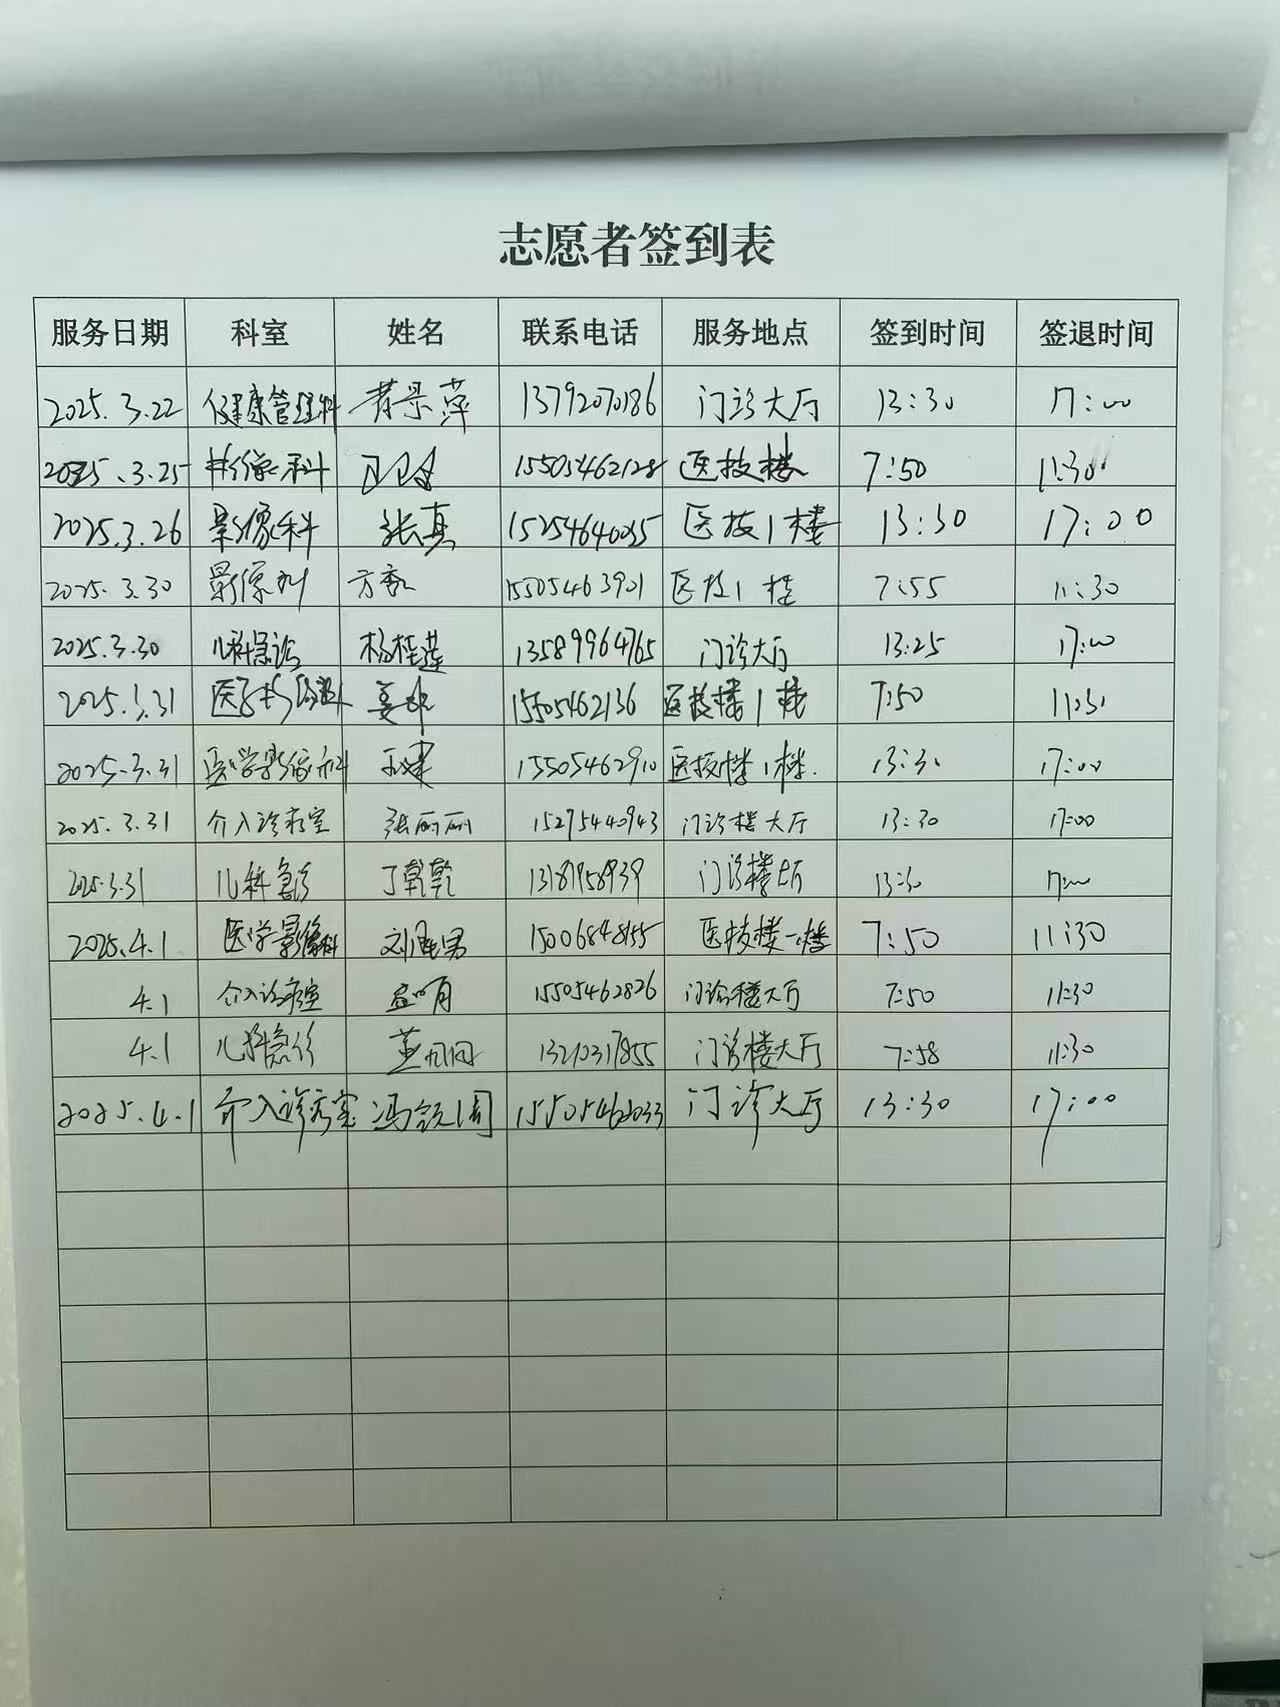 志愿者签到表
服务日期 科室 姓名 联系电话 服务地点 签到时间 签退时间
2025.3.22 健康管理科 景萍 13792070186 门诊大厅 13:30 17:00
2025.3.25 影像科 15505462128 医技楼 7:50 11:30
2025.3.26 影像科 张真 15254640035 医技1楼 13:30 17:00
2025.3.30 影像科 方 15505463901 医技1楼 7:55 11:30
2025.3.30 儿科急诊 杨桂莲 13589964765 门诊大厅 13:25 17:00
2025.3.31 医学影像科 姜 15505462136 医技楼1楼 7:50 11:30
2025.3.31 医学影像科 王建 15505462910 医技楼1楼. 13:30 17:00
2025.3.31 介入诊疗室 张丽丽 15275440943 门诊楼大厅 13:30 17:00
2025.3.31 儿科急诊 丁乾乾 门诊楼大厅 13:30 17:00
2025.4.1 医学影像科 刘 男 15006848155 医技楼一楼 7:50 11:30
4.1 介入诊疗室 孟明 15505462826 门诊楼大厅 7:50 11:30
4.1 儿科急诊 13210317855 门诊楼大厅 7:58 11:30
2025.4.1 介入诊疗室 冯 15505462033 门诊大厅 13:30 17:00